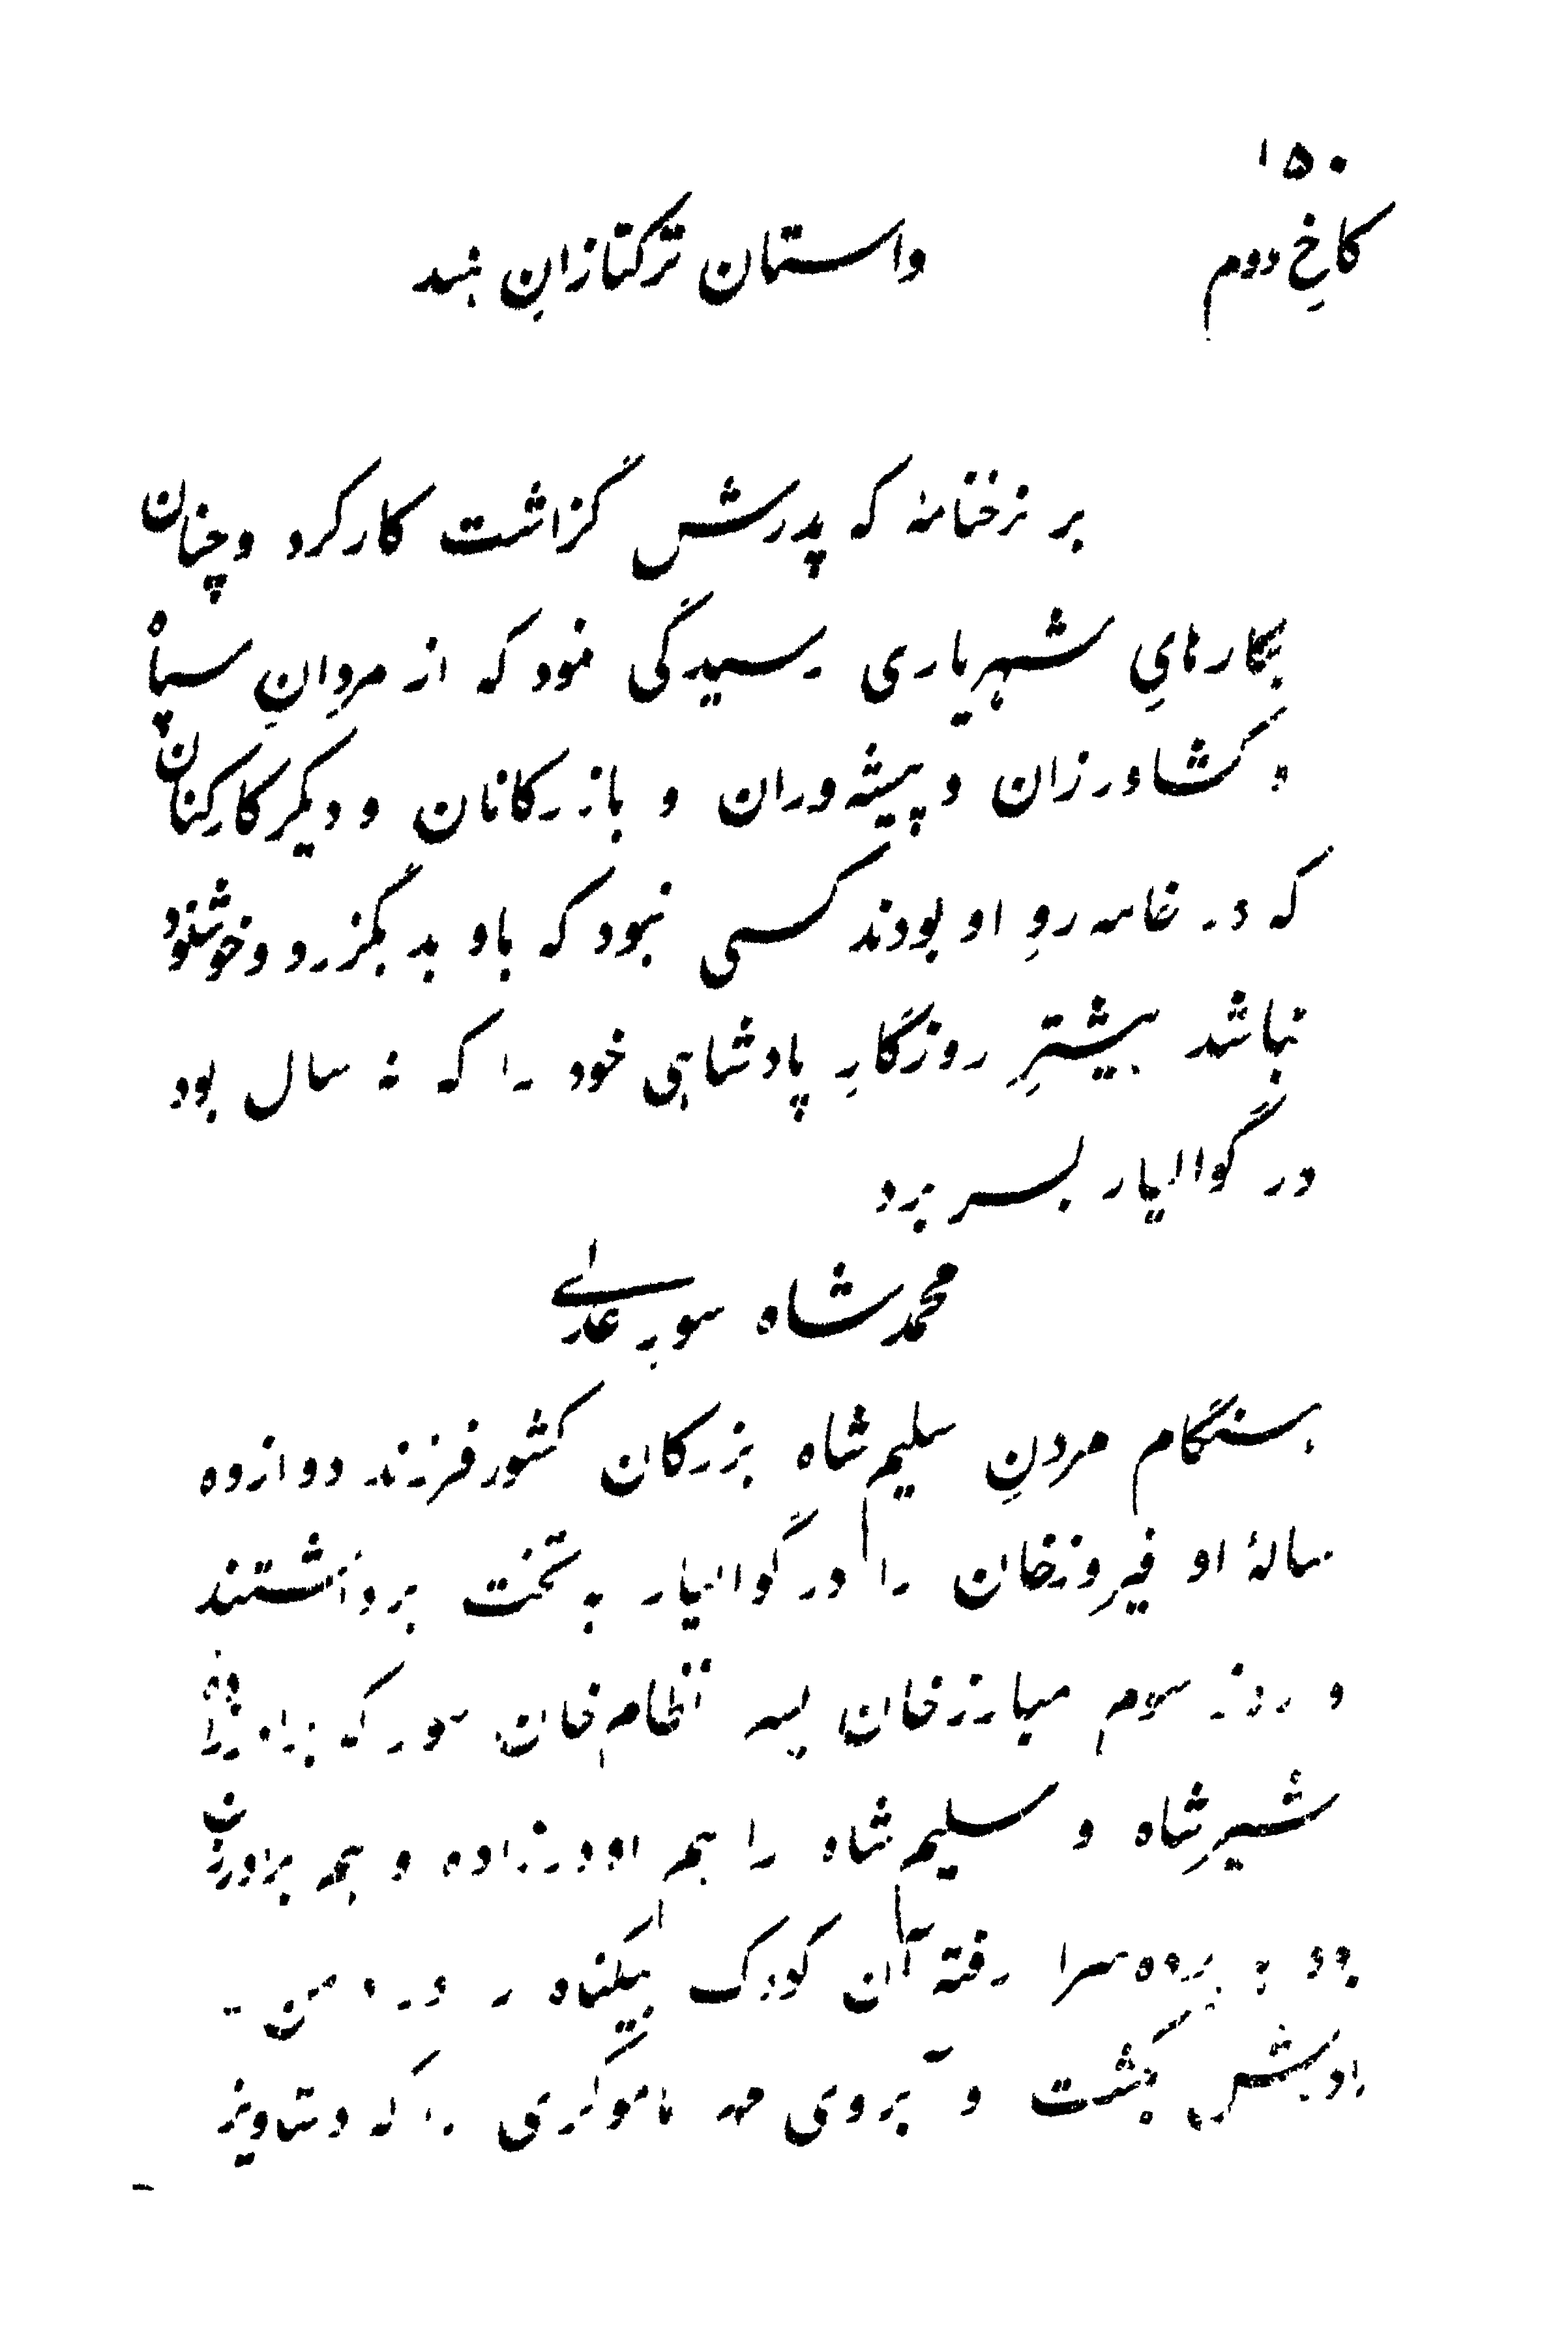 ۱۵۰
کاخِ دوم داستان ترکتازانِ هند
بر نرخنامهٔ که پدرش گزاشت کار کرد و چنان
بکارهایِ شهریاری رسیدگی نمود که از مردانِ سپاه
و کشاورزان و پیشه‌وران و بازرکانان و دیکر کارکنان
که در خامه روِ او بودند کسی نبود که باو بد بگزرد و خوشنود
نباشد بیشترِ روزگارِ پادشاهی خود را که نه سال بود
در گوالیار بسر برد
محمد شاه سور عدلی
بهنگام مردنِ سلیم شاه بزرکان کشور فرزند دوازده
سالهٔ او فیروزخان را در گوالیار به تخت برداشتند
و روز سوم مبارزخان پسر نظام خان سور که برادرزاده
شیرشاه و سلیم شاه را هم اودرزاده و هم برادرزن
بود به پرده سرا رفته آن کودک بیکناه را در دامن
مادرش بکشت و آبروی مهر مادری را که دستاویز